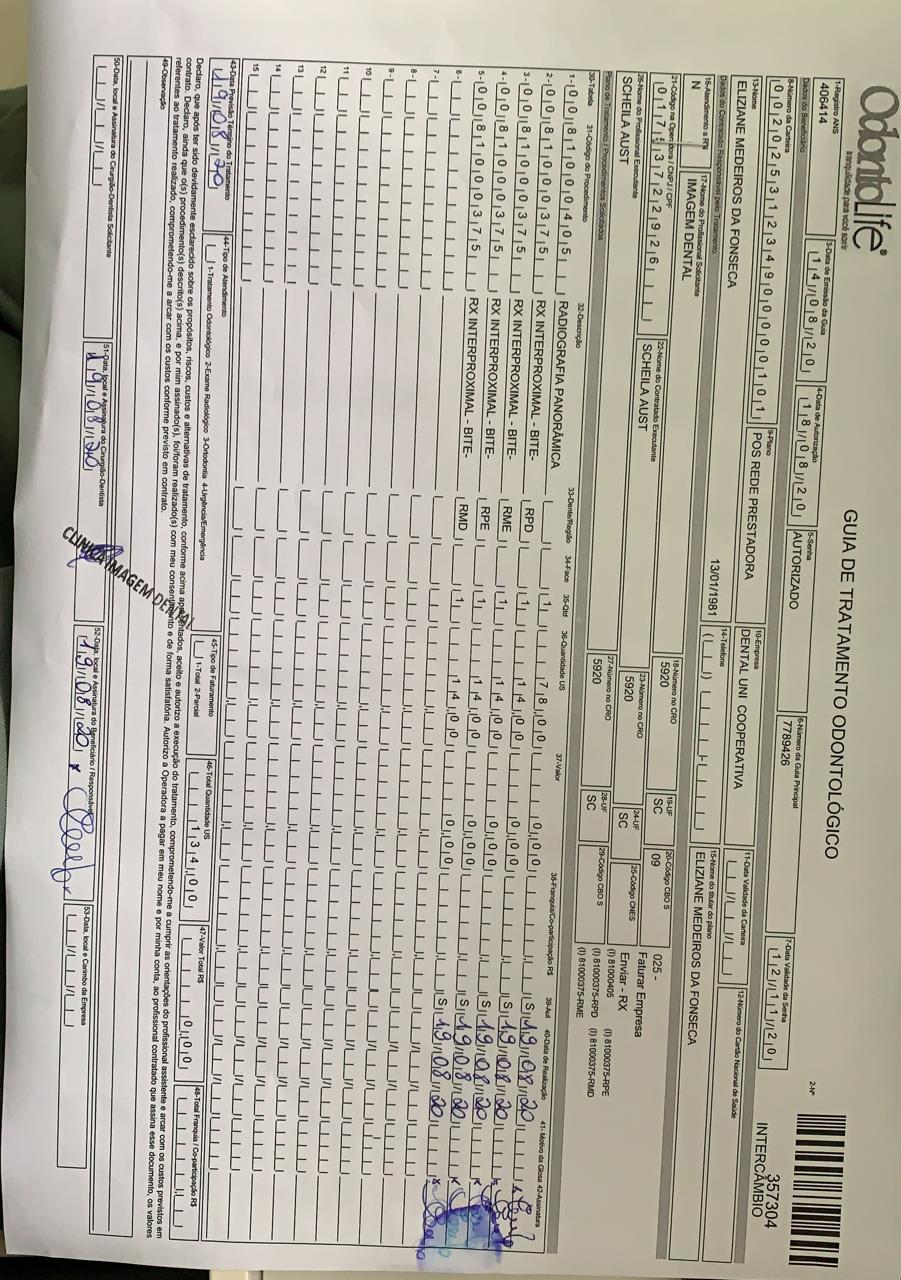 OdontoLife®
tranquilidade para você sorrir
GUIA DE TRATAMENTO ODONTOLÓGICO
2-Nº
357304
INTERCÂMBIO
1-Registro ANS
40614
3-Data de Emissão da Guia
14/08/20
4-Data de Autorização
18/08/20
5-Senha
AUTORIZADO
6-Número da Guia Principal
7789426
7-Data Validade da Senha
12/11/20
Dados do Beneficiário
8-Número da Carteira
00202531234900000101
9-Plano
POS REDE PRESTADORA
10-Empresa
DENTAL UNI COOPERATIVA
11-Data Validade da Carteira
12-Número do Cartão Nacional de Saúde
13-Nome
ELIZIANE MEDEIROS DA FONSECA
13/01/1981
14-Telefone
15-Nome do titular do plano
ELIZIANE MEDEIROS DA FONSECA
Dados do Contratado Responsável pelo Tratamento
16-Atendimento a RN
N
17-Nome do Profissional Solicitante
IMAGEM DENTAL
18-Número no CRO
5920
19-UF
SC
20-Código CBO S
09
025 -
Faturar Empresa
Enviar - RX
21-Código na Operadora / CNPJ / CPF
01753722926
22-Nome do Contratado Executante
SCHEILA AUST
23-Número no CRO
5920
24-UF
SC
25-Código CNES
26-Nome do Profissional Executante
SCHEILA AUST
27-Número no CRO
5920
28-UF
SC
29-Código CBO S
(I) 81000405
(I) 81000375-RPE
(I) 81000375-RPD
(I) 81000375-RMD
(I) 81000375-RME
Plano de Tratamento / Procedimentos Solicitados
30-Tabela 31-Código do Procedimento 32-Descrição 33-Dente/Região 34-Face 35-Qtd 36-Quantidade US 37-Valor 38-Franquia/Co-participação R$ 39-Aut 40-Data de Realização 41- Motivo da Glosa 42-Assinatura
1- 00 81000405 RADIOGRAFIA PANORÂMICA 1 78,00 0,00 S 19/08/20
2- 00 81000375 RX INTERPROXIMAL - BITE- RPD 1 14,00 0,00 S 19/08/20
3- 00 81000375 RX INTERPROXIMAL - BITE- RME 1 14,00 0,00 S 19/08/20
4- 00 81000375 RX INTERPROXIMAL - BITE- RPE 1 14,00 0,00 S 19/08/20
5- 00 81000375 RX INTERPROXIMAL - BITE- RMD 1 14,00 0,00 S 19/08/20
6-
7-
8-
9-
10
11
12
13
14
15
43-Data Previsão Término do Tratamento
19/08/20
44-Tipo de Atendimento
1-Tratamento Odontológico 2-Exame Radiológico 3-Ortodontia 4-Urgência/Emergência
45-Tipo de Faturamento
1-Total 2-Parcial
46-Total Quantidade US
134,00
47-Valor Total R$
0,00
48-Total Franquia / Co-participação R$
Declaro, que após ter sido devidamente esclarecido sobre os propósitos, riscos, custos e alternativas de tratamento, conforme acima apresentados, aceito e autorizo a execução do tratamento, comprometendo-me a cumprir as orientações do profissional assistente e arcar com os custos previstos em
contrato. Declaro, ainda que o(s) procedimento(s) descrito(s) acima, e por mim assinado(s), foi/foram realizado(s) com meu consentimento e de forma satisfatória. Autorizo a Operadora a pagar em meu nome e por minha conta, ao profissional contratado que assina esse documento, os valores
referentes ao tratamento realizado, comprometendo-me a arcar com os custos conforme previsto em contrato.
49-Observação
CLINICA IMAGEM DENTAL
50-Data, local e Assinatura do Cirurgião-Dentista Solicitante
51-Data, local e Assinatura do Cirurgião-Dentista
19/08/20
52-Data, local e Assinatura do Beneficiário / Responsável
19/08/20
53-Data, local e Carimbo da Empresa